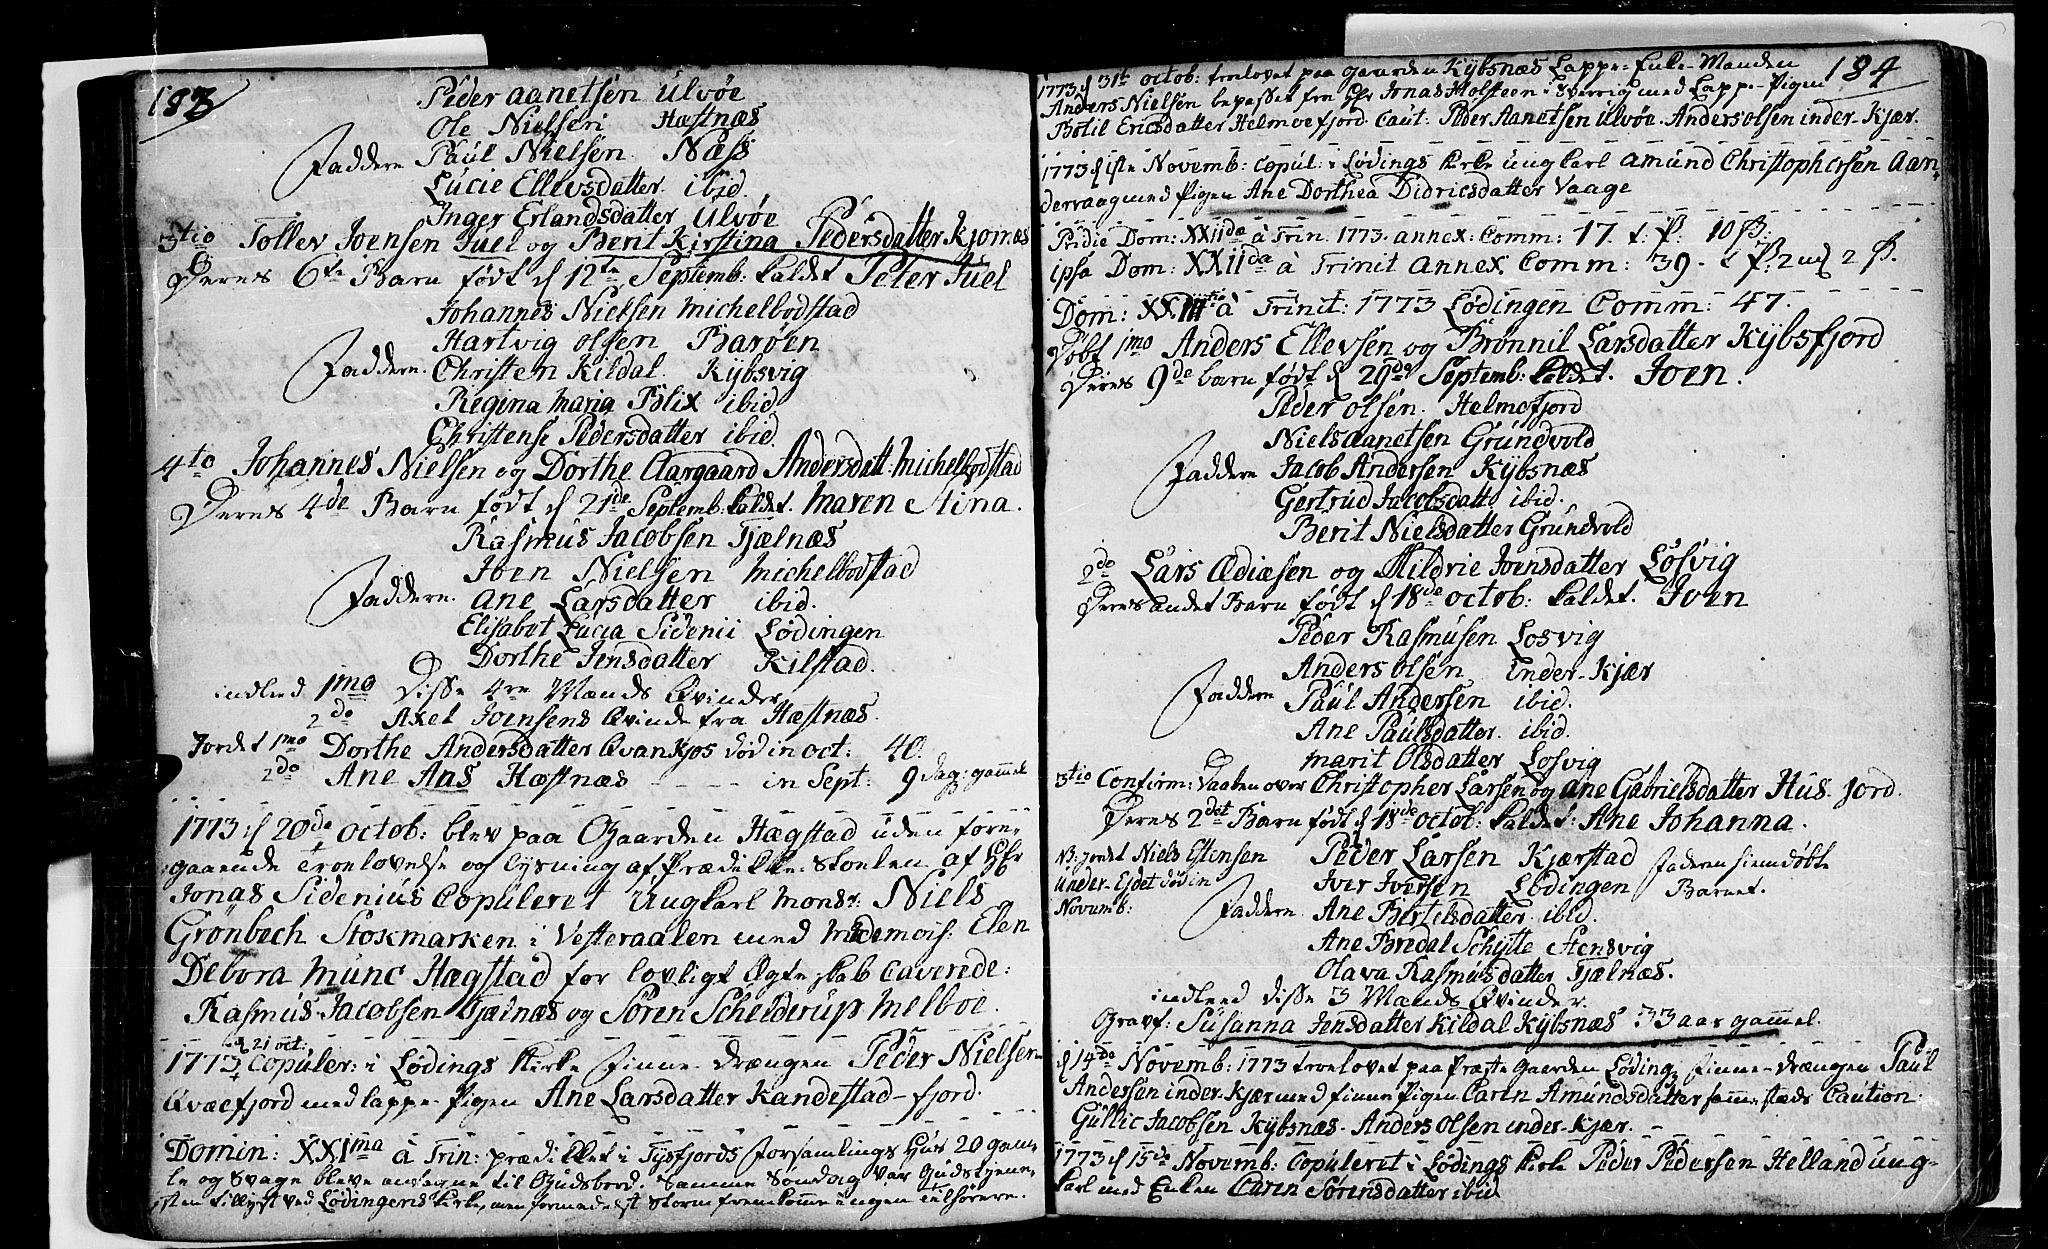 183
Peder Aanetsen Ulvøe
Ole Nielsen Hæstnæs
Faddere Paul Nielsen Næss
Lucie Ellevsdatter ibid.
Inger Erlandsdatter Ulvøe
3tio Tollev Joensen Juel og Berit Kirstina Pedersdatter Kjomæs
Deres 6te Barn født d 12te Septemb: kaldet Peter Juel
Johannes Nielsen Michelbodstad
Hartvig Olsen Barøen
Faddere. Christen Kildal Kybsvig
Regina Maria Blix ibid
Christense Pedersdatter ibid.
4to Johannes Nielsen og Dorthe Aargaard Andersdatt: Michelbodstad
Deres 4de Barn født d 21de Septemb: kaldet. Maren Stina.
Rasmus Jacobsen Tjælnæs
Joen Nielsen Michelbodstad
Faddere. Ane Larsdatter ibid.
Elisabet Lucia Sidenii Lødingen
Dorthe Jensdatter Kilstad.
indled 1mo Disse 4re Mænds Qvinder
2do Axel Joensens Qvinde fra Hæstnæs.
Jordet 1mo Dorthe Andersdatter Qvankjos død in oct: 40.
2do Ane Aas Hæstnæs - - - - in Sept: 9 Dag: gammel
1773 d 20de octob: blev paa Gaarden Hægstad uden fore-
gaaende Troelovelse og lysning af Prædikke-Stoelen af Hr
Jonas Sidenius Copuleret Ungkarl Monsr: Niels
Grønbech Stokmarken i Vesteraalen med Mademois: Elen
Debora Munc Hægstad for lovligt Ægteskab Caverede:
Rasmus Jacobsen Tjælnæs og Søren Schelderup Melboe.
d 21 oct:
1773 Copuler: i Lødings Kirke Finne-Drængen Peder Nielsen
Qvæefjord med lappe-Pigen Ane Larsdatter Kandestad-fjord.
Domin: XXIma à Trin: prædikket i Tysfjords Forsamlings Hus 20 gam-
le og Svage bleve antagne til Gudsbord. Samme Søndag var Gudstjene-
sten tillyst ved Lødingens Kirke, men formedelst Storm fremkomme ingen Tilhørere.
184
1773 d 31te octob: troelovet paa gaarden Kybsnæs Lappe-Enke-Manden
Anders Nielsen bepasset fra Hr Jonas Holsteen i Sverrig med Lappe-Pigen
Botil Ericsdatter Helmoefjord. Caut: Peder Aanetsen Ulvøe. Anders Olsen inder-Kjær.
1773 d 1ste Novemb: Copul: i Lødings Kirke ungkarl Amund Christophersen Aan-
dervaag med Pigen Ane Dorthea Didricsdatter Vaage
Pridie Dom: XXIIda à Trin. 1773. annex: Comm: 17 t: P: 10 β:
ipsa Dom: XXIIda à Trinit Annex Comm: 39. t P: 2 mg 2 β.
Dom: XXIIItia à Trinit: 1773 Lødingen Comm: 47.
Døbt 1mo Anders Ellevsen og Brønnil Larsdatter Kybsfjord
Deres 9de barn født d 29de Septemb: kaldet. Joen.
Peder Olsen. Helmofjord
Niels Aanetsen Grundvold
Faddere Jacob Andersen Kybsnæs
Gertrud Jacobsdatt: ibid.
Berit Nielsdatter Grundvold
2do Lars Ædiæsen og Mildrie Joensdatter Losvig
Deres andet Barn født d 18de octob: kaldet. Joen
Peder Rasmusen Losvig
Anders Olsen Inder-Kjær
Faddere Paul Andersen ibid.
Ane Paulsdatter ibid.
Marit Olsdatter Losvig
3tio Confirm: Daaben over Christopher Larsen og Ane Gabrielsdatter Hus-jord.
Deres 2det Barn født d 18de octob: kaldet: Ane Johanna.
NB: jordet Niels Estensen
Under-Eidet død in
Novemb:
Peder Larsen Kjærstad
Iver Iversen Lødingen
Faddere. Ane Bertelsdatter ibid.
Ane Bredal Schytte Stensvig
Olava Rasmusdatter Tjælnæs.
Faderen hiemdøbte
Barnet.
indleed disse 3 Mænds Qvinder.
Gravf: Susanna Jensdatter Kildal Kybsnæs 33 aar gammel.
d 14de Novemb: 1773 troelovet paa Præste Gaarden Løding Finne-Drængen Paul
Andersen inder-Kjær med finne Pigen Caren Amundsdatter samme stæds Caution:
Gullic Jacobsen Kybsnæs. Anders Olsen inder-Kjær.
1773 d 15de Novemb: Copuleret i Lødings Kirke Peder Pedersen Helland ung-
karl med Enken Caren Sørensdatter ibid